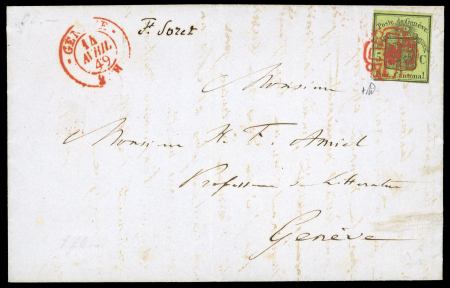 GENÈVE
14
AVRIL
49
F. Soret
Poste de Genève
Cantonal
Monsieur
Monsieur H. F. Amiel
Professeur de Littérature
Genève